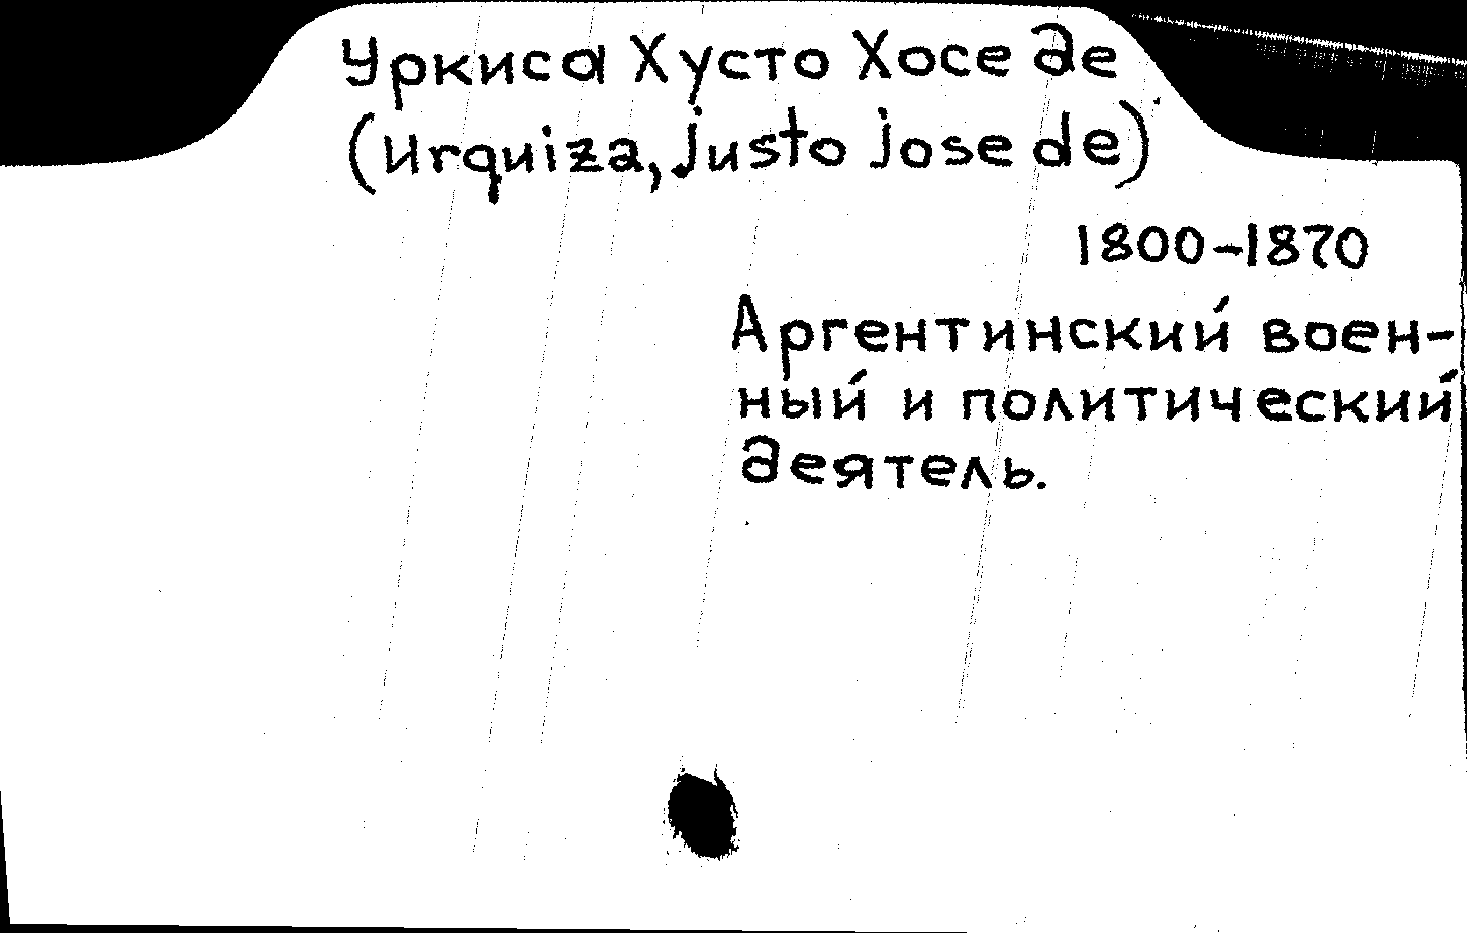 Уркиса Хусто Хосе де
(Urquiza, justo jose de)
1800-1870
Аргентинский воен-
ный и политический
деятель.